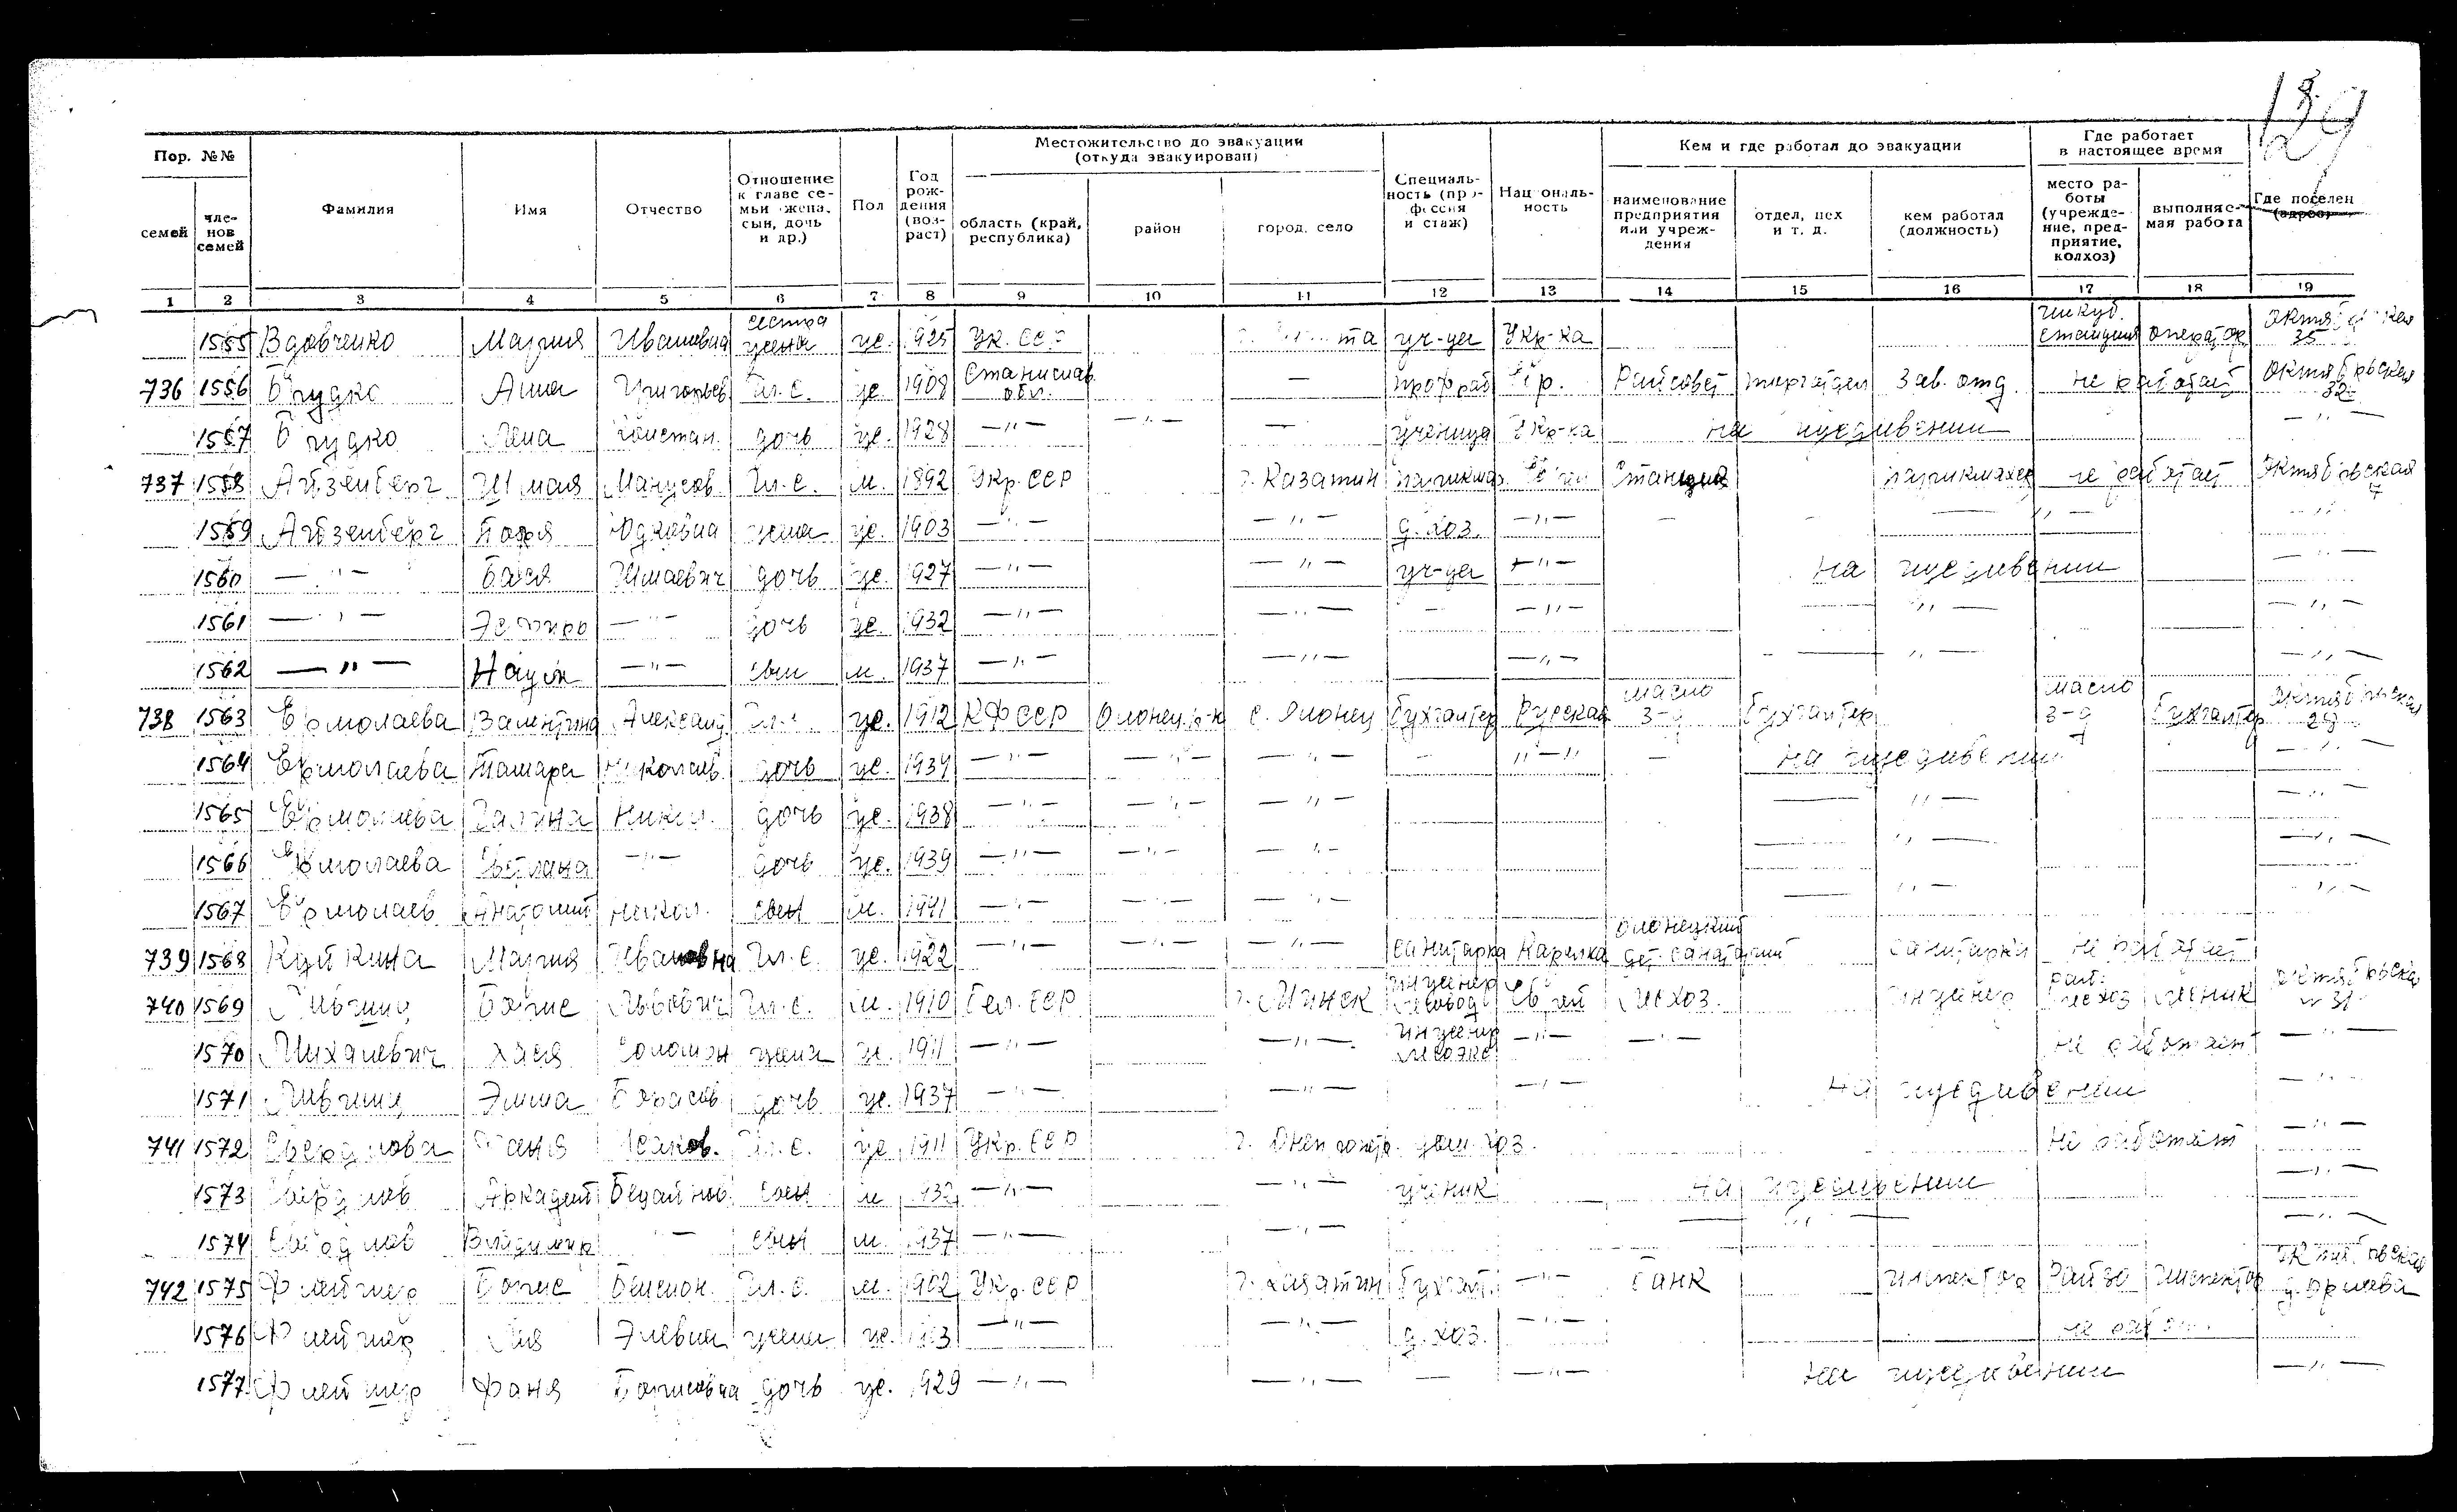 139
Пор. №№ Местожительство до эвакуации (откуда эвакуирован) Кем и где работал до эвакуации Где работает в настоящее время
семей членов семей Фамилия Имя Отчество Отношение к главе семьи (жена, сын, дочь и др.) Пол Год рождения (возраст) область (край, республика) район город, село Специальность (профессия и стаж) Национальность наименование предприятия или учреждения отдел, цех и т. д. кем работал (должность) место работы (учреждение, предприятие, колхоз) выполняемая работа Где поселен (адрес)
1 2 3 4 5 6 7 8 9 10 11 12 13 14 15 16 17 18 19
1555 Вдовченко Мария Ивановна сестра жены же. 1925 Ук. ССР уч-ца Укр-ка инкуб. станция оператор 35
736 1556 Анна Григорьев Гл. с. же. 1908 Станислав. обл. — Райсовет Зав. отд. не работает Октябрьская 32
1557 Лена дочь же. 1928 — " — — " — — ученица Укр-ка на иждивении — " —
737 1558 Айзенберг Шмая Манусов. Гл. с. м. 1892 Укр. ССР г. Казатин парикмах. Станция парикмахер не работает Октябрьская
1559 Айзенберг Юдковна жена же. 1903 — " — — " — д. хоз. — " — — " —
1560 — " — Бася Шмаевич дочь же. 1927 — " — — " — уч-ца — " — на иждивении — " —
1561 — " — — " — дочь же. 1932 — " — — " — — — " — — " — — " —
1562 — " — Наум — " — сын м. 1937 — " — — " — — " — — " — — " —
738 1563 Ермолаева Валентина Александ. Гл. с. же. 1912 КФССР Олонец. р-н с. Олонец бухгалтер Русская масло з-д бухгалтер масло з-д бухгалтер Октябрьская 29
1564 Ермолаева Тамара Николаев. дочь же. 1934 — " — — " — — " — — " — " — на иждивении — " —
1565 Ермолаева Галина Никол. дочь же. 1938 — " — — " — — " — — " — — " —
1566 Ермолаева Светлана — " — дочь же. 1939 — " — — " — — " — — " — — " —
1567 Ермолаев Анатолий Никол. сын м. 1941 — " — — " — — " — — " — — " —
739 1568 Куйкина Мария Ивановна Гл. с. же. 1922 — " — — " — — " — санитарка Карелка Олонецкий дет. санаторий санитарка не работает
740 1569 Лившиц Борис Львович Гл. с. м. 1910 Бел. ССР г. Минск инженер лесовод Еврей Лесхоз. инженер лесхоз лесник Октябрьская № 31
1570 Михалевич Хася Соломон жена же. 1911 — " — — " — инженер — " — — " — не работает — " —
1571 Лившиц Эмма Борисов. дочь же. 1937 — " — — " — — " — на иждивении — " —
741 1572 Свердлова Исаков. Гл. с. же. 1911 Укр. ССР г. Днепропетр. дом. хоз. не работает — " —
1573 Свердлов Аркадий сын м. 1932 — " — — " — ученик на иждивении — " —
1574 Свердлов Владимир — " — сын м. 1937 — " — — " — — " — — " —
742 1575 Флейшер Борис Бенцион. Гл. с. м. 1902 Укр. ССР г. Казатин бухгалт. — " — банк инспектор Райзо инспектор
1576 Флейшер Лия жена же. — " — — " — д. хоз. — " — не работ.
1577 Флейшер Фаня Борисовна дочь же. 1929 — " — — " — — — " — на иждивении — " —